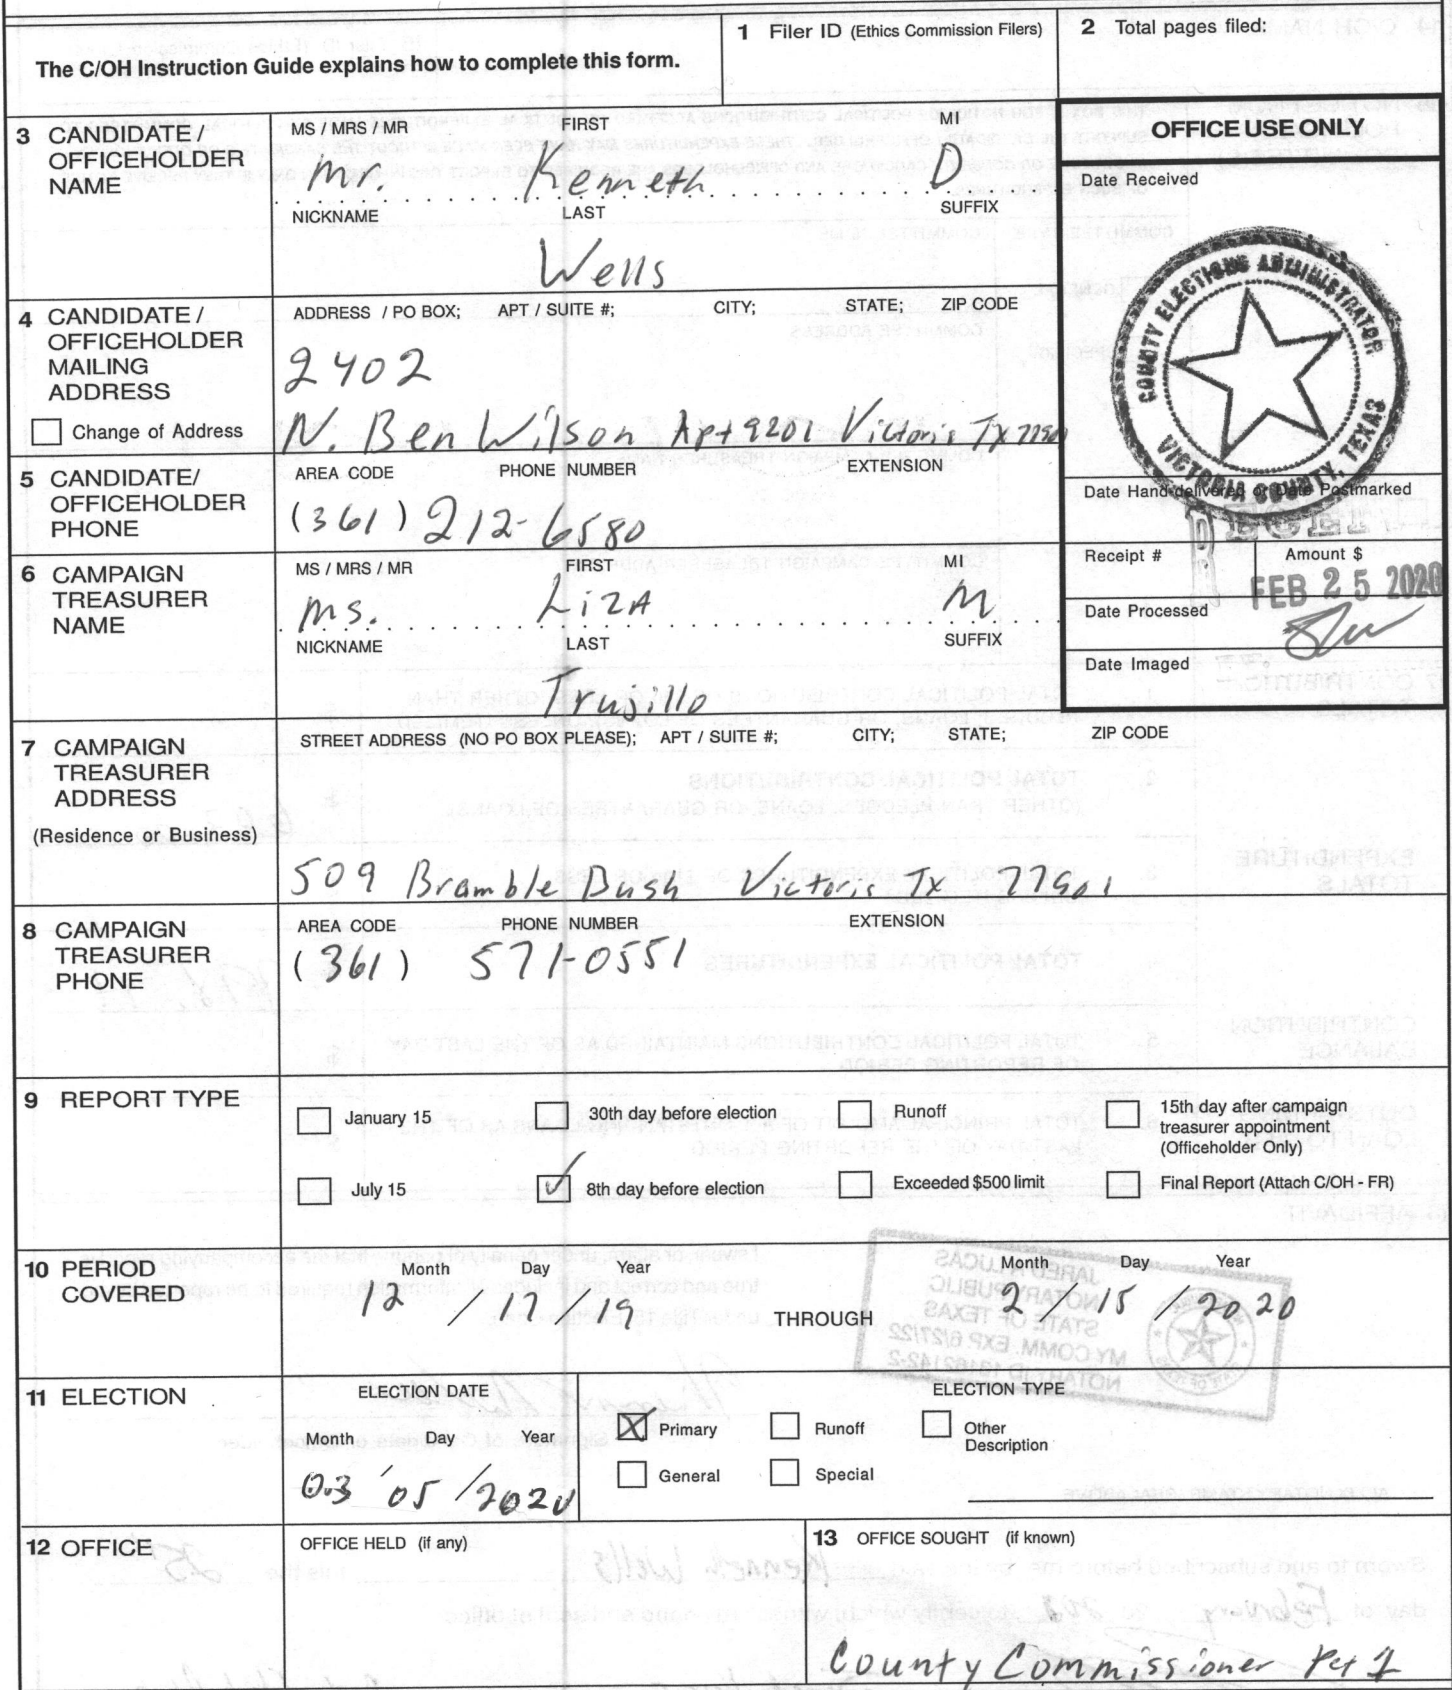 The C/OH Instruction Guide explains how to complete this form.
1 Filer ID (Ethics Commission Filers)
2 Total pages filed:
3 CANDIDATE / OFFICEHOLDER NAME
MS / MRS / MR FIRST MI
Mr. Kenneth D
NICKNAME LAST SUFFIX
Wells
OFFICE USE ONLY
Date Received
COUNTY ELECTIONS ADMINISTRATOR
VICTORIA COUNTY, TEXAS
Date Hand-delivered or Date Postmarked
Receipt # Amount $
FEB 25 2020
Date Processed
Date Imaged
4 CANDIDATE / OFFICEHOLDER MAILING ADDRESS
Change of Address
ADDRESS / PO BOX; APT / SUITE #; CITY; STATE; ZIP CODE
2402
N. Ben Wilson Apt 9201 Victoria Tx
5 CANDIDATE/ OFFICEHOLDER PHONE
AREA CODE PHONE NUMBER EXTENSION
(361) 212-6580
6 CAMPAIGN TREASURER NAME
MS / MRS / MR FIRST MI
Ms. LizA M
NICKNAME LAST SUFFIX
Trujillo
7 CAMPAIGN TREASURER ADDRESS
(Residence or Business)
STREET ADDRESS (NO PO BOX PLEASE); APT / SUITE #; CITY; STATE; ZIP CODE
509 Bramble Bush Victoria Tx 77901
8 CAMPAIGN TREASURER PHONE
AREA CODE PHONE NUMBER EXTENSION
(361) 571-0551
9 REPORT TYPE
January 15
30th day before election
Runoff
15th day after campaign treasurer appointment (Officeholder Only)
July 15
8th day before election
Exceeded $500 limit
Final Report (Attach C/OH - FR)
10 PERIOD COVERED
Month Day Year
12 / 17 / 19
THROUGH
Month Day Year
2 / 15 / 2020
11 ELECTION
ELECTION DATE
Month Day Year
03 / 05 / 2020
ELECTION TYPE
Primary Runoff Other Description
General Special
12 OFFICE
OFFICE HELD (if any)
13 OFFICE SOUGHT (if known)
County Commissioner Pct 1